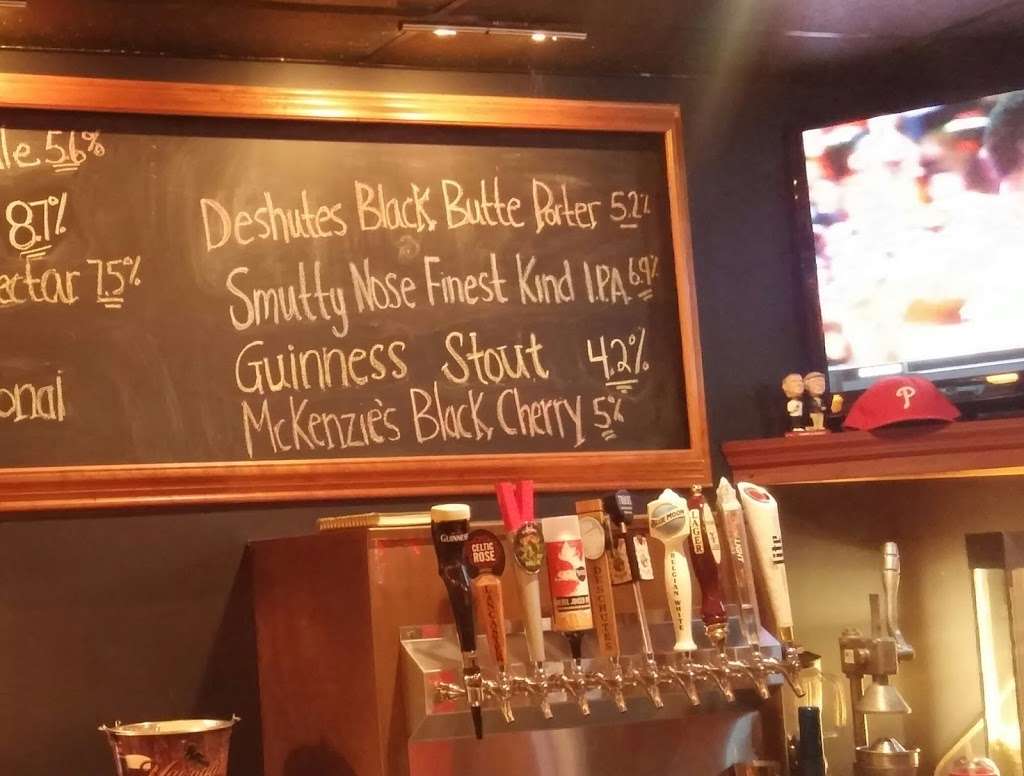 le 5.6%
8.7%
ectar 7.5%
onal
Deshutes Black Butte Porter 5.2%
Smutty Nose Finest Kind I.P.A. 6.9%
Guinness Stout 4.2%
McKenzie's Black Cherry 5%
P
GUINNESS
CELTIC ROSE
LANCASTER
DESCHUTES
BLUE MOON
BELGIAN WHITE
LAGER
lite